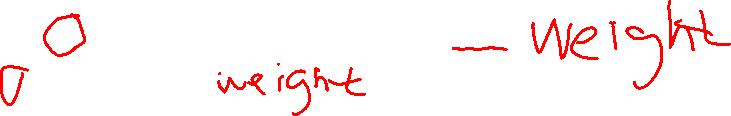 — Weight
weight